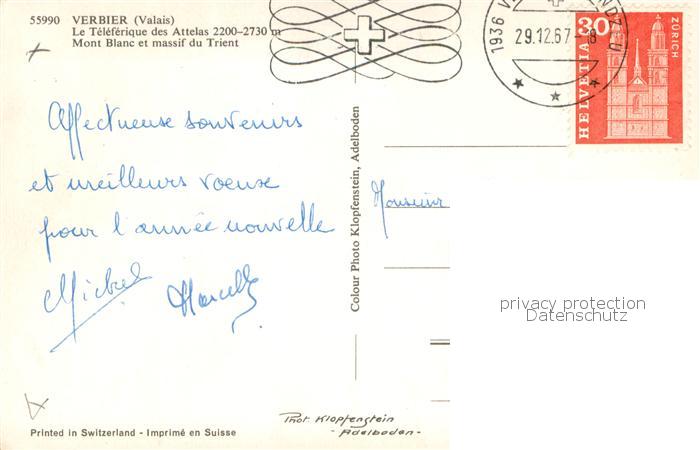 55990 VERBIER (Valais)
Le Téléférique des Attelas 2200-2730 m
Mont Blanc et massif du Trient
1936 V
29.12.67-8
HELVETIA
30
ZÜRICH
Affectueuse souvenirs
et meilleurs voeuse
pour l'année nouvelle
Michel Marcelle
Monsieur
Colour Photo Klopfenstein, Adelboden
privacy protection
Datenschutz
Phot. Klopfenstein
- Adelboden -
Printed in Switzerland - Imprimé en Suisse